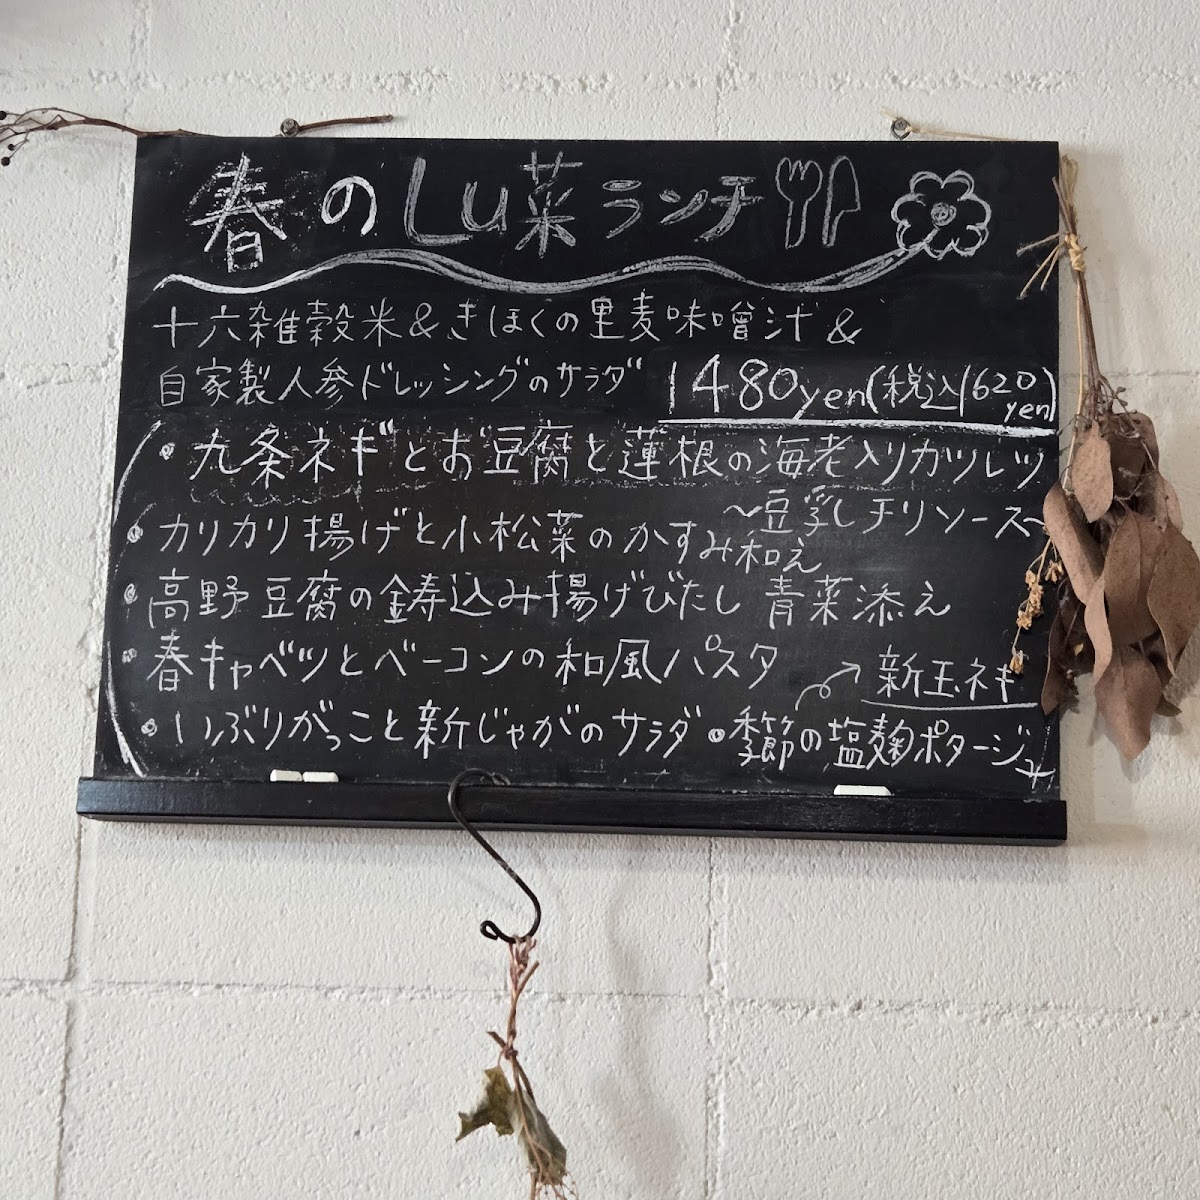 春のLu菜ランチ
十六雑穀米&きほくの里麦味噌汁&
自家製人参ドレッシングのサラダ 1480yen(税込1620yen)
・九条ネギとお豆腐と蓮根の海老入りカツレツ
〜豆乳チリソース〜
・カリカリ揚げと小松菜のかすみ和え
・高野豆腐の鋳込み揚げびたし 青菜添え
・春キャベツとベーコンの和風パスタ
新玉ネギ
・いぶりがっこと新じゃがのサラダ ・季節の塩麹ポタージュ